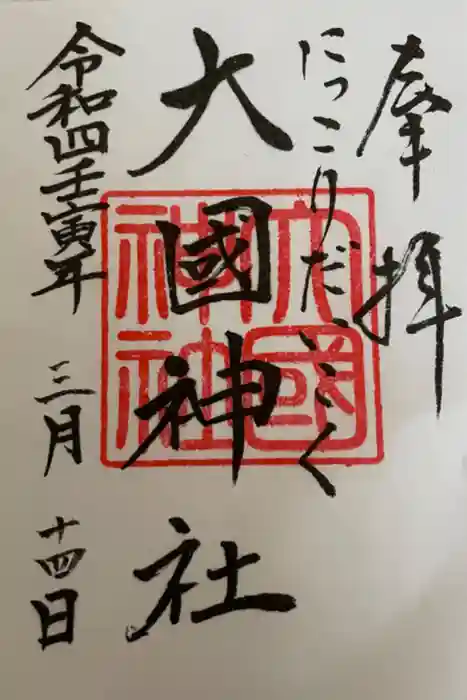 奉拝
にっこりだいこく
大國神社
大國神社
令和四壬寅年
三月
十四日